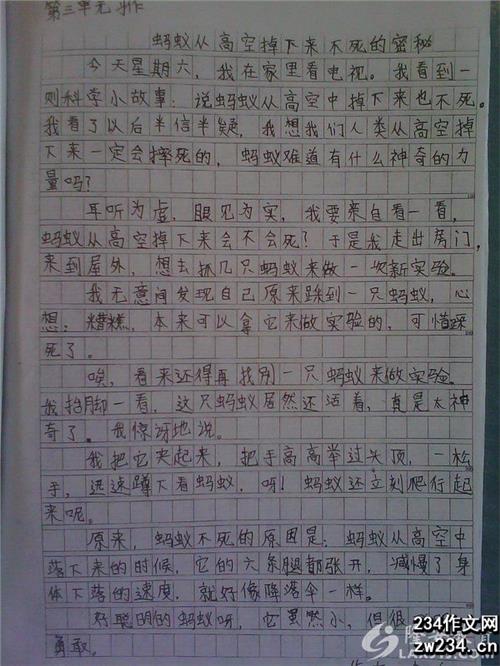 第三单元习作
蚂蚁从高空掉下来不死的密秘
今天星期六，我在家里看电视。我看到一
则科学小故事：说蚂蚁从高空中掉下来也不死。
我看了以后半信半疑，我想我们人类从高空掉
下来一定会摔死的，蚂蚁难道有什么神奇的力
量吗？
耳听为虚，眼见为实，我要亲自看一看，
蚂蚁从高空掉下来会不会死？于是我走出房门，
来到屋外，想去抓几只蚂蚁来做一次新实验。
我无意间发现自己原来跺到一只蚂蚁，心
想：糟糕，本来可以拿它来做实验的，可惜踩
死了。
唉，看来还得再找别一只蚂蚁来做实验。
我抬脚一看，这只蚂蚁居然还活着，真是太神
奇了。我惊讶地说。
我把它夹起来，把手高高举过头顶，一松
手，迅速蹲下看蚂蚁，呀！蚂蚁还立刻爬行起
来呢。
原来，蚂蚁不死的原因是：蚂蚁从高空中
落下来的时候，它的六条腿都张开，减慢了身
体下落的速度，就好像降落伞一样。
好聪明的蚂蚁呀，它虽然小，但很
勇敢。
234作文网
zw234.cn